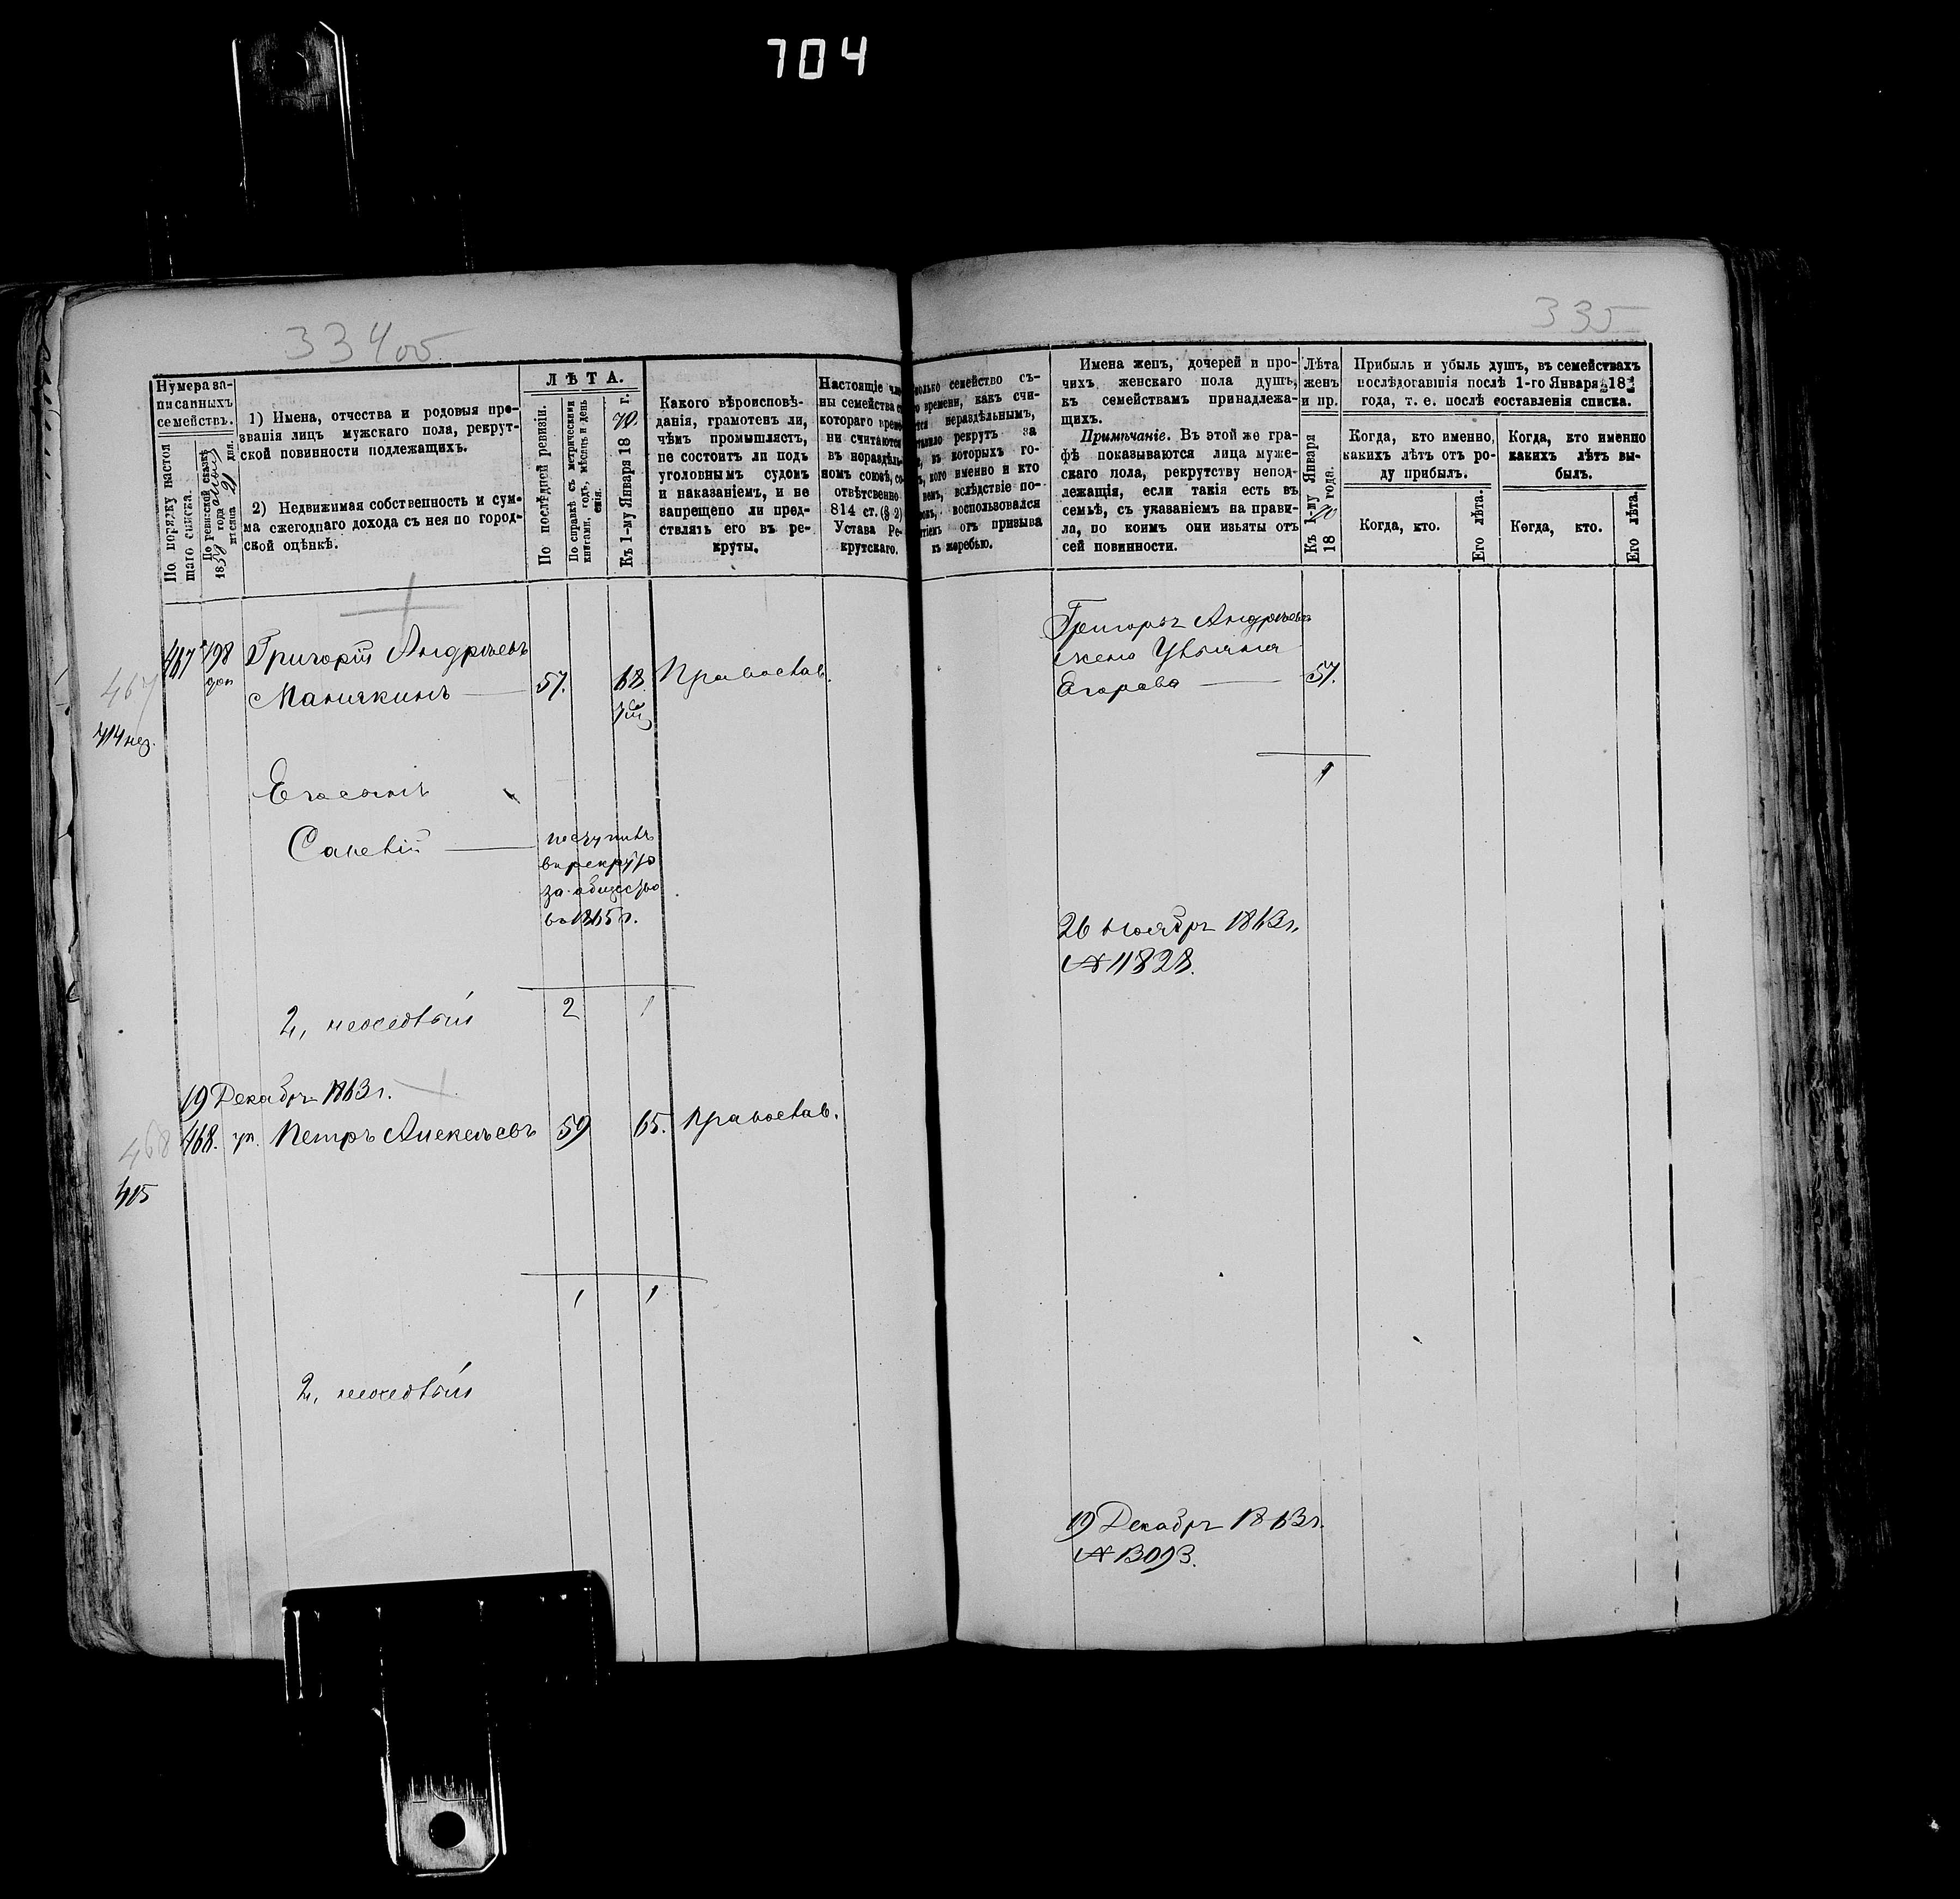 704
334 об
335
Нумера за-
писанныхъ
семействъ.
По порядку настоя
щаго списка.
По ревизской сказкѣ
18 года
мѣсяца дня.
1) Имена, отчества и родовыя про-
званія лицъ мужскаго пола, рекрут-
ской повинности подлежащихъ.
2) Недвижимая собственность и сум-
ма ежегоднаго дохода съ нея по город-
ской оцѣнкѣ.
ЛѢТА.
По послѣдней ревизіи.
По справкѣ съ метрическими
книгами, годъ, мѣсяцъ и день
Къ 1-му Января 18 70 г.
Какого вѣроисповѣ-
данія, грамотенъ ли,
чѣмъ промышляетъ,
не состоитъ ли подъ
уголовнымъ судомъ
и наказаніемъ, и не
запрещено ли пред-
ставлять его въ ре-
круты.
Настоящіе чле-
ны семейства с
котораго време
ни считаются
въ нераздѣль-
номъ союзѣ, со-
отвѣтсвенно
814 ст. (§ 2)
Устава Ре-
крутскаго.
семейство съ-
времени, какъ счи-
нераздѣльнымъ,
рекрутъ за
въ которыхъ го-
кого именно и кто
вслѣдствіе по-
воспользовался
отъ призыва
къ жеребью.
Имена женъ, дочерей и про-
чихъ женскаго пола душъ,
къ семействамъ принадлежа-
щихъ.
Примѣчаніе. Въ этой же гра-
фѣ показываются лица муже-
скаго пола, рекрутству непод-
лежащія, если такія есть въ
семьѣ, съ указаніемъ на прави-
ла, по коимъ они изъяты отъ
сей повинности.
Лѣта
женъ
и пр.
Къ 1-му Января
18 70 года.
Прибыль и убыль душъ, въ семействахъ
послѣдовавшія послѣ 1-го Января 18
года, т. е. послѣ составленія списка.
Когда, кто именно,
какихъ лѣтъ отъ ро-
ду прибылъ.
Когда, кто именно
какихъ лѣтъ вы-
былъ.
Когда, кто.
Его лѣта.
Когда, кто.
Его лѣта.
467 198 Григорій Андреевъ
доп
Манякинъ 57. 68 Православ.
467
414 нез.
Григорья Андреева
жена Ульяна
Егорова 57.
1
Его сынъ
Савелій поступилъ
в рекруты
за общество
въ 1865 г.
26 Ноября 1863 г.
№ 11828.
2 1
2, неоседлый
19 Декабря 1863 г.
468. Петръ Алексѣевъ 59 65. Православ.
468
415
1 1
2, неоседлый
19 Декабря 1863 г.
№ 13093.